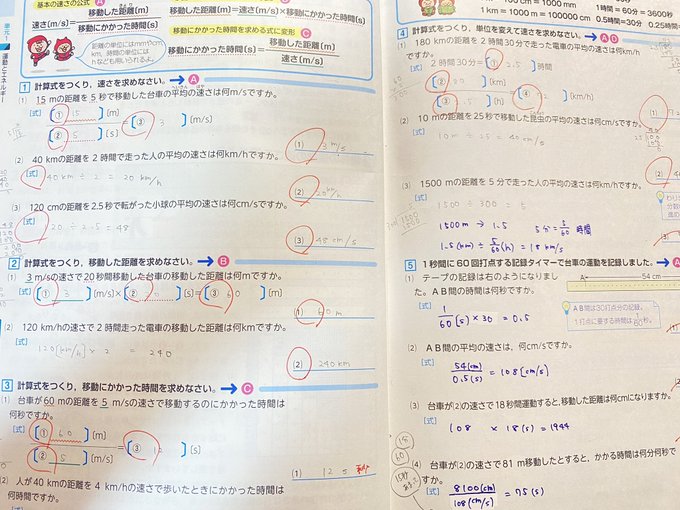 基本の速さの公式 A
移動した距離[m]
移動した距離(m)=速さ(m/s)×移動にかかった時間(s)
移動にかかった時間[s]
移動にかかった時間を求める式に変形 C
移動にかかった時間(s)=
移動した距離[m]
速さ(m/s)
距離の単位にはmmや
km、時間の単位には
hなども用いられるよ。
単元1
運動とエネルギー
1 計算式をつくり、速さを求めなさい。→A
(1) 15 mの距離を5秒で移動した台車の平均の速さは何m/sですか。
[式] ① 15 [m]
② 5 [s]
= ③ 3 [m/s]
(1) 3 m/s
(2) 40 kmの距離を2時間で走った人の平均の速さは何km/hですか。
[式] 40 km ÷ 2 = 20 km/h
(2) 20km/h
(3) 120 cmの距離を2.5秒で転がった小球の平均の速さは何cm/sですか。
[式] 120 ÷ 2.5 = 48
(3) 48 cm/s
2 計算式をつくり、移動した距離を求めなさい。→B
(1) 3 m/sの速さで20秒間移動した台車の移動した距離は何mですか。
[式] ① 3 [m/s]× ② [s]= ③ 60 [m]
(1) 60 m
(2) 120 km/hの速さで2時間走った電車の移動した距離は何kmですか。
[式] 120[km/h] × 2 = 240
(2) 240 km
3 計算式をつくり、移動にかかった時間を求めなさい。→C
(1) 台車が60 mの距離を5 m/sの速さで移動するのにかかった時間は
何秒ですか。
[式] ① 60 [m]
② 5 [m/s]
= ③ 12 [s]
(1) 12 s 秒
(2) 人が40 kmの距離を4 km/hの速さで歩いたときにかかった時間は
何時間ですか。
1 km = 1000 m = 100000 cm
1時間=60分=3600秒
0.5時間=30分
4 計算式をつくり、単位を変えて速さを求めなさい。→A D
(1) 180 kmの距離を2時間30分で走った電車の平均の速さは何km/hですか。
[式] 2時間30分= ① 2.5 時間
② 180 [km]
③ 2.5 [h]
= ④ 72 [km/h]
(2) 10 mの距離を25秒で移動した昆虫の平均の速さは何cm/sですか。
[式] 10 m ÷ 25 = 40 cm/s
(3) 1500 mの距離を5分で走った人の平均の速さは何km/hですか。
[式] 1500 ÷ 300 = 5
1500m → 1.5 5分=5/60 時間
1.5(km)÷5/60(h)=18km/s
5 1秒間に60回打点する記録タイマーで台車の運動を記録しました。→A
(1) テープの記録は右のようになりまし
た。AB間の時間は何秒ですか。
[式] 1/60(s)×30=0.5
A
54 cm
AB間は30打点分の記録。
1打点に要する時間は1/60秒。
(2) AB間の平均の速さは、何cm/sですか。
[式] 54(cm)/0.5(s)=108[cm/s]
(3) 台車が(2)の速さで18秒間運動すると、移動した距離は何cmになりますか。
[式] 108 ×18(s)=1944
(4) 台車が(2)の速さで81 m移動したとすると、かかる時間は何分何秒で
すか。
[式] 8100(cm)/108(cm/s)=75(s)